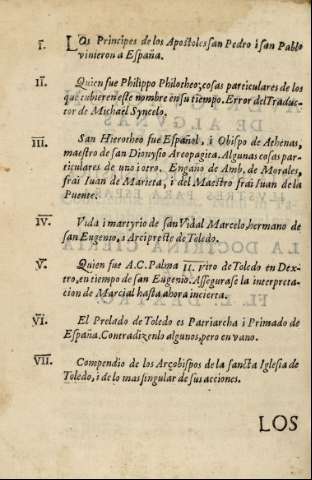 I. LOs Principes de los Apostoles san Pedro i san Pablo
vinieron a España.
II. Quien fue Philippo Philotheo; cosas particulares de los
que tubieren este nombre en su tiempo. Error del Traduc-
tor de Michael Syncelo.
III. San Hierotheo fue Español, i Obispo de Athenas,
maestro de san Dionysio Areopagita. Algunas cosas par-
ticulares de uno i otro. Engaño de Amb. de Morales,
frai Iuan de Marieta, i del Maestro frai Iuan de la
Puente.
IV. Vida i martyrio de san Vidal Marcelo, hermano de
san Eugenio, i Arcipreste de Toledo.
V. Quien fue A.C. Palma II. de Toledo en Dex-
tro, en tiempo de san Eugenio. Assegurase la interpreta-
cion de Marcial hasta ahora incierta.
VI. El Prelado de Toledo es Patriarcha i Primado de
España. Contradizenlo algunos, pero en vano.
VII. Compendio de los Arçobispos de la sancta Iglesia de
Toledo, i de lo mas singular de sus acciones.
LOS